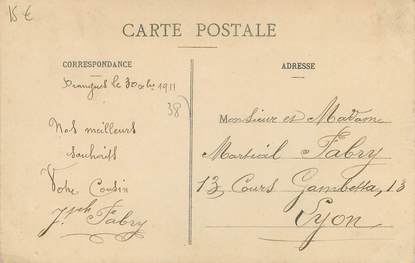 15 €
CARTE POSTALE
CORRESPONDANCE
ADRESSE
le 30 xbre 1911
38
Nos meilleurs
souhaits
Votre Cousin
Jph Fabry
Monsieur et Madame
Martial Fabry
13 Cours Gambetta, 13
Lyon